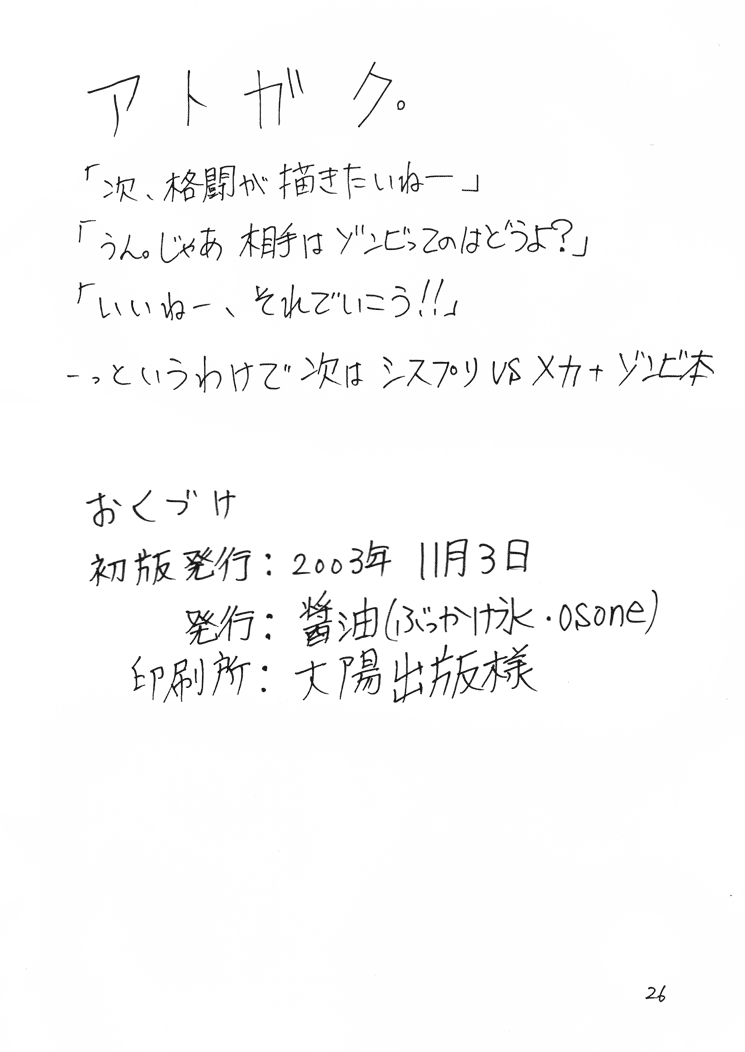 アトガク。
「次、格闘が描きたいねー」
「うん。じゃあ相手はゾンビってのはどうよ?」
「いいねー、それでいこう!!」
ーっというわけで次はシスプリVSメカ+ゾンビ本
おくづけ
初版発行：2003年 11月3日
発行：醤油(ぶっかけ氷・osone)
印刷所：太陽出版様
26